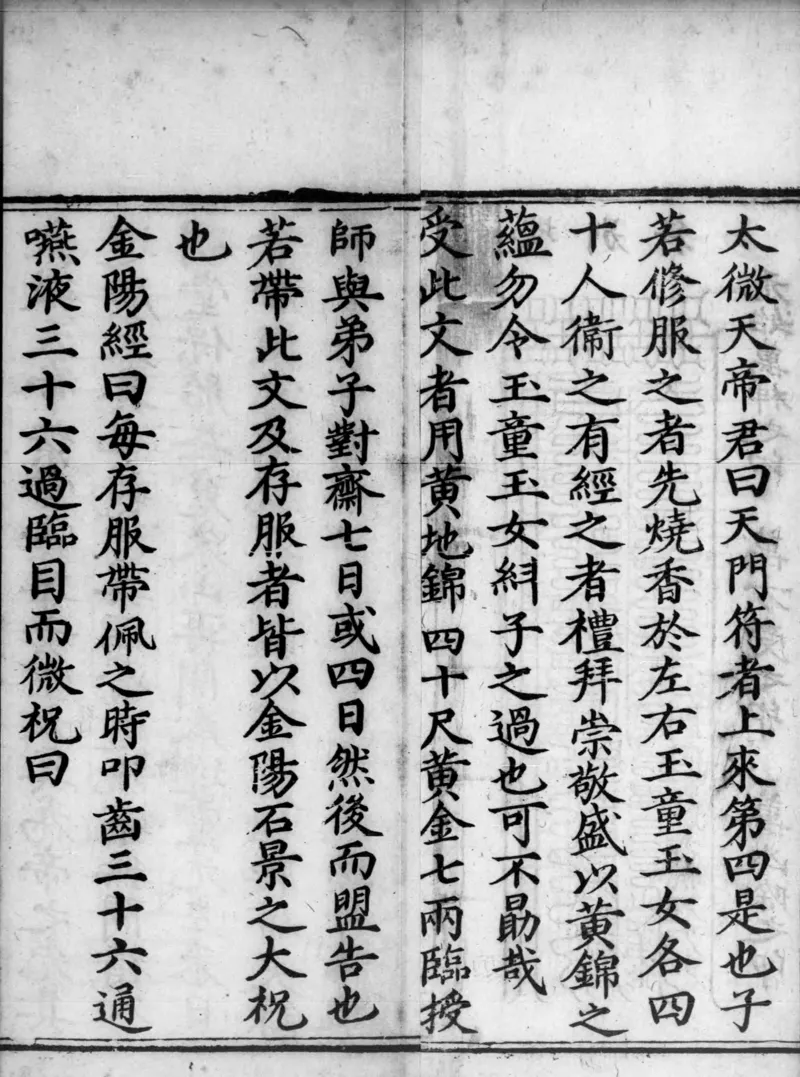 太微天帝君曰天門符者上來第四是也子
若修服之者先燒香於左右玉童玉女各四
十人衞之有經之者禮拜崇敬盛以黃錦之
蘊勿令玉童玉女糾子之過也可不勗哉
受此文者用黃地錦四十尺黃金七兩臨授
師與弟子對齋七日或四日然後而盟告也
若帶此文及存服者皆以金陽石景之大祝
也
金陽經曰每存服帶佩之時叩齒三十六通
嚥液三十六過臨目而微祝曰